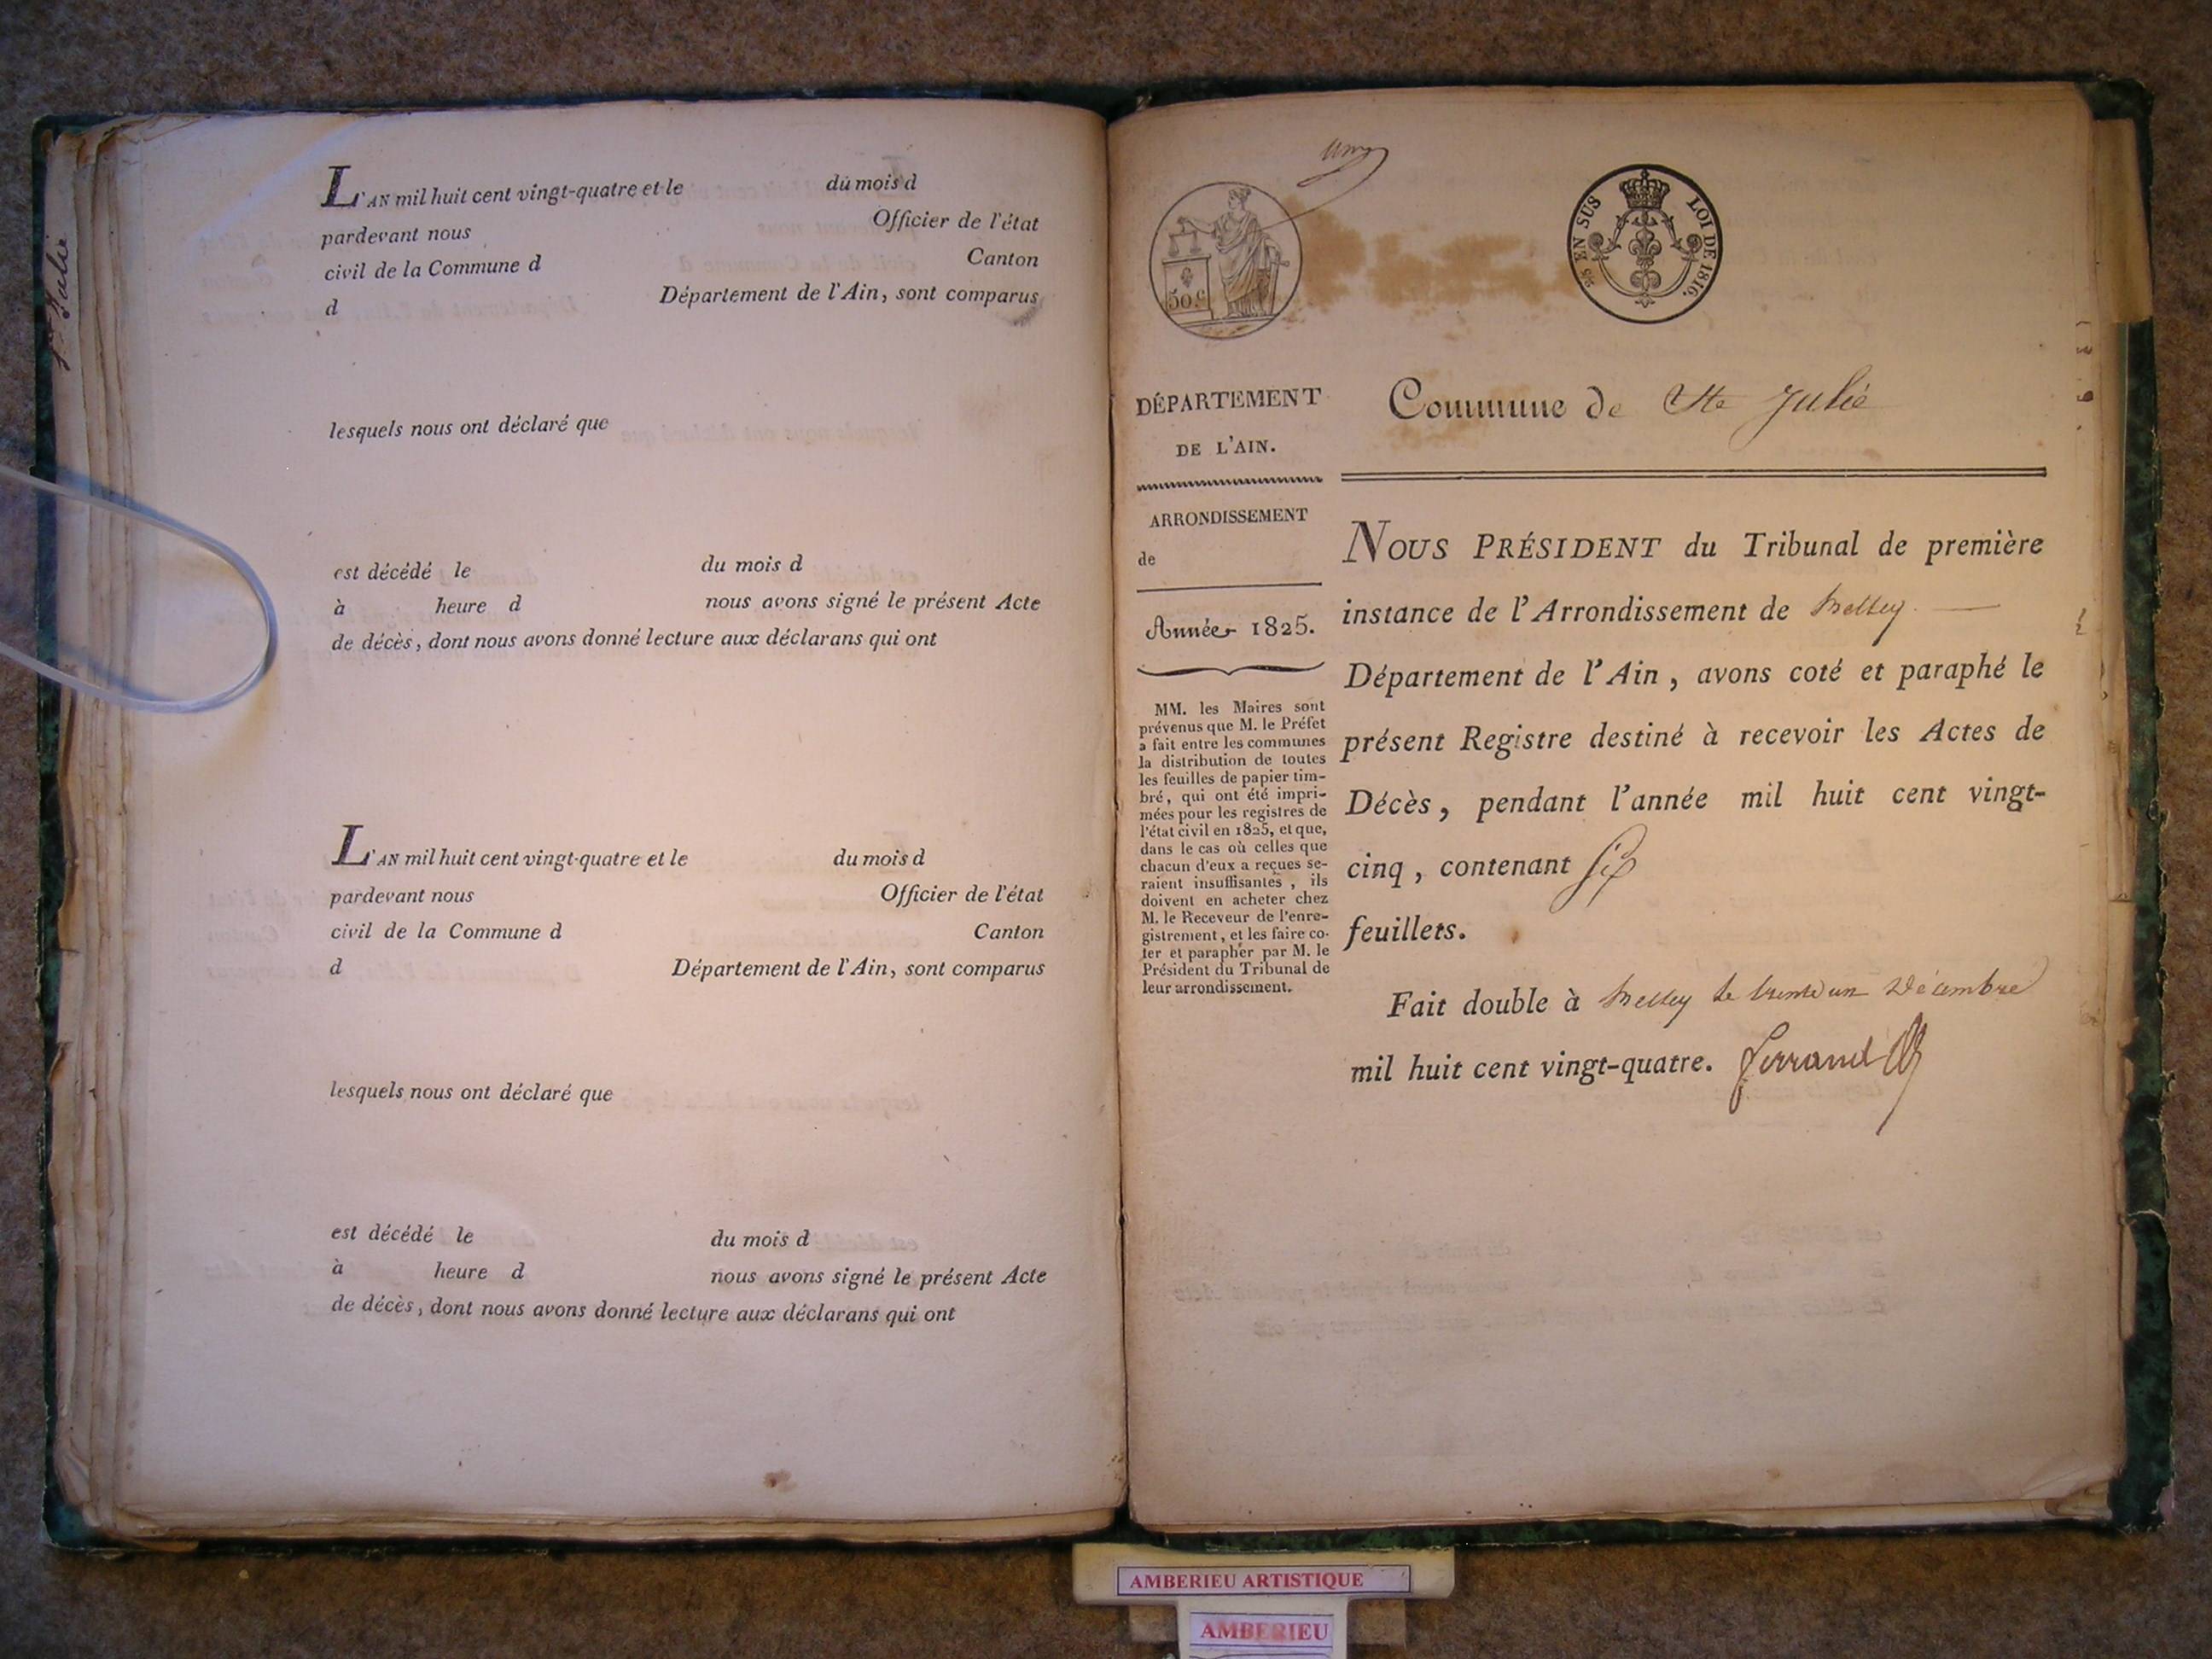 Ste Julie
L'AN mil huit cent vingt-quatre et le du mois d
pardevant nous Officier de l'état
civil de la Commune d Canton
d Département de l'Ain, sont comparus
lesquels nous ont déclaré que
est décédé le du mois d
à heure d nous avons signé le présent Acte
de décès, dont nous avons donné lecture aux déclarans qui ont
L'AN mil huit cent vingt-quatre et le du mois d
pardevant nous Officier de l'état
civil de la Commune d Canton
d Département de l'Ain, sont comparus
lesquels nous ont déclaré que
est décédé le du mois d
à heure d nous avons signé le présent Acte
de décès, dont nous avons donné lecture aux déclarans qui ont
50 c
EN SUS LOI DE 1816.
DÉPARTEMENT
DE L'AIN.
ARRONDISSEMENT
de
Année 1825.
MM. les Maires sont
prévenus que M. le Préfet
a fait entre les communes
la distribution de toutes
les feuilles de papier tim-
bré, qui ont été impri-
mées pour les registres de
l'état civil en 1825, et que,
dans le cas où celles que
chacun d'eux a reçues se-
raient insuffisantes, ils
doivent en acheter chez
M. le Receveur de l'enre-
gistrement, et les faire co-
ter et parapher par M. le
Président du Tribunal de
leur arrondissement.
Commune de Ste Julie
NOUS PRÉSIDENT du Tribunal de première
instance de l'Arrondissement de Belley
Département de l'Ain, avons coté et paraphé le
présent Registre destiné à recevoir les Actes de
Décès, pendant l'année mil huit cent vingt-
cinq, contenant six
feuillets.
Fait double à Belley le trente un Décembre
mil huit cent vingt-quatre. Ferrand
AMBERIEU ARTISTIQUE
AMBERIEU